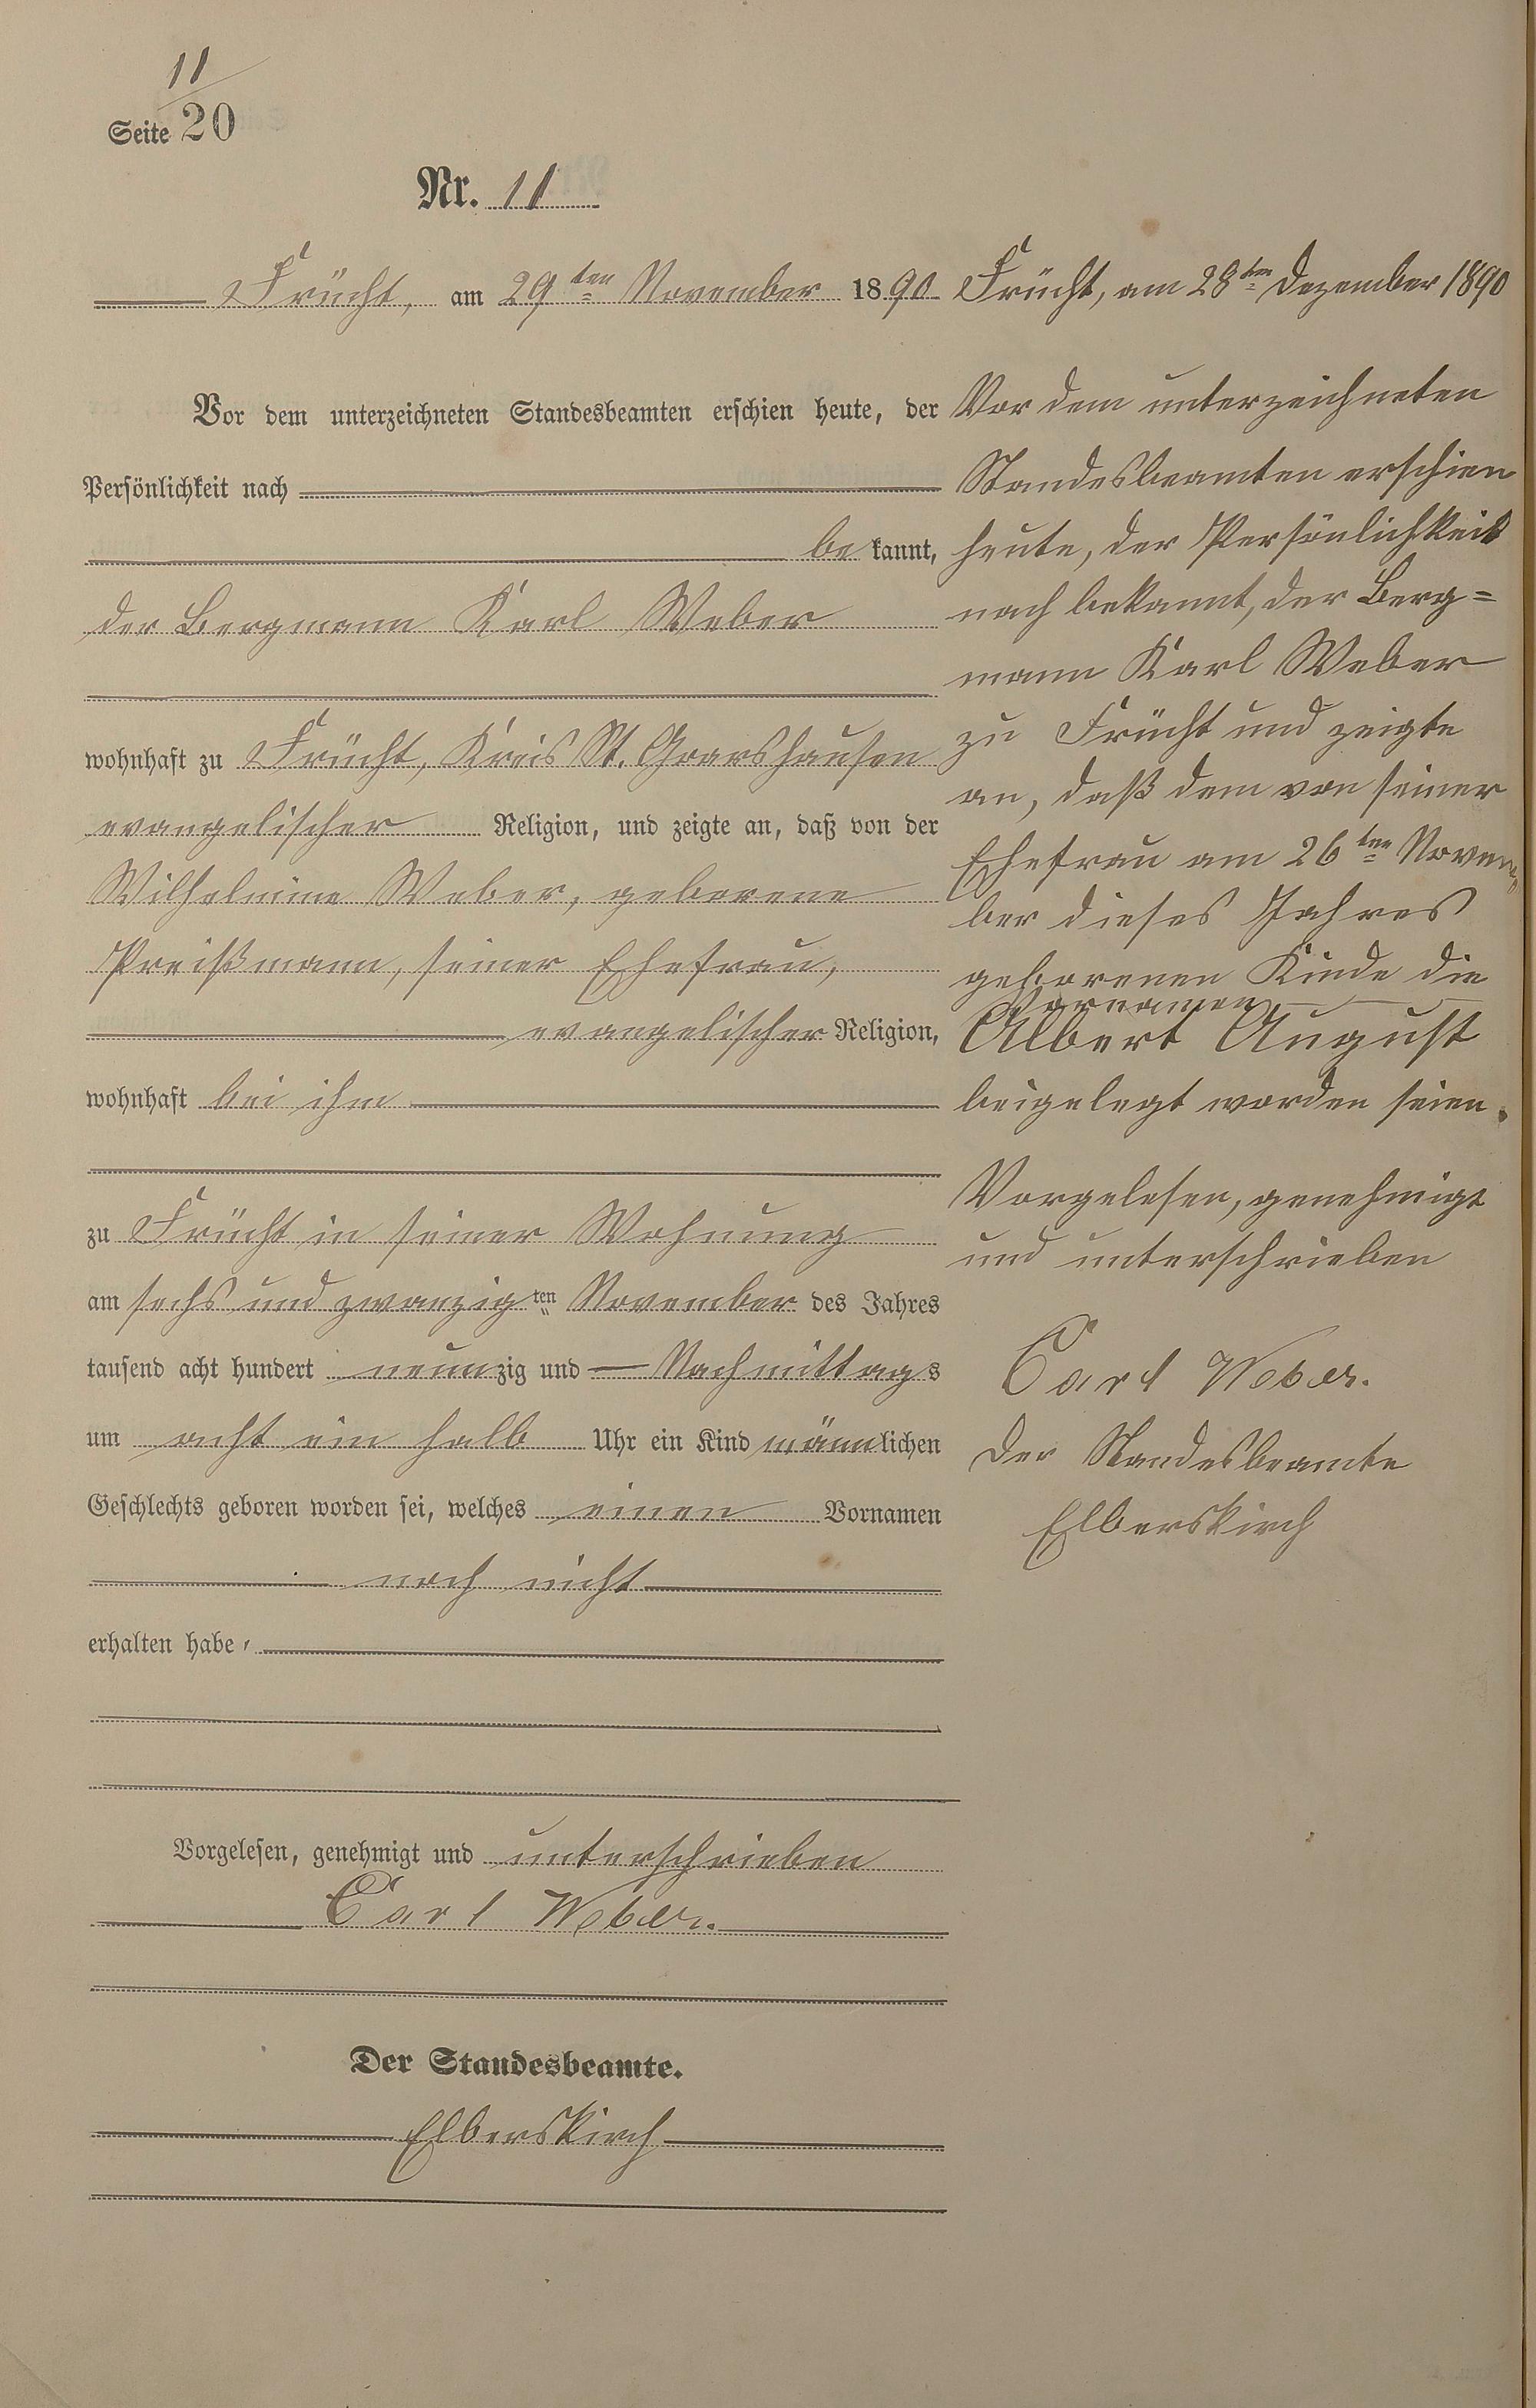 11
Seite 20
Nr. 11
Frücht, am 29ten November 1890
Vor dem unterzeichneten Standesbeamten erschien heute, der
Persönlichkeit nach
bekannt,
der Bergmann Karl Weber
wohnhaft zu Frücht, Kreis St. Goarshausen
evangelischer Religion, und zeigte an, daß von der
Wilhelmine Weber, geborene
Preißmann, seiner Ehefrau,
evangelischer Religion,
wohnhaft bei ihm
zu Frücht in seiner Wohnung
am sechs und zwanzigten November des Jahres
tausend acht hundert neunzig und — Nachmittags
um acht ein halb Uhr ein Kind männlichen
Geschlechts geboren worden sei, welches einen Vornamen
noch nicht
erhalten habe.
Vorgelesen, genehmigt und unterschrieben
Carl Weber.
Der Standesbeamte.
Elberskirch
Frücht, am 28ten Dezember 1890
Vor dem unterzeichneten
Standesbeamten erschien
heute, der Persönlichkeit
nach bekannt, der Berg=
mann Karl Weber
zu Frücht und zeigte
an, daß dem von seiner
Ehefrau am 26ten Novem=
ber dieses Jahres
geborenen Kinde die
Vornamen
Albert August
beigelegt worden seien.
Vorgelesen, genehmigt
und unterschrieben
Carl Weber.
Der Standesbeamte
Elberskirch